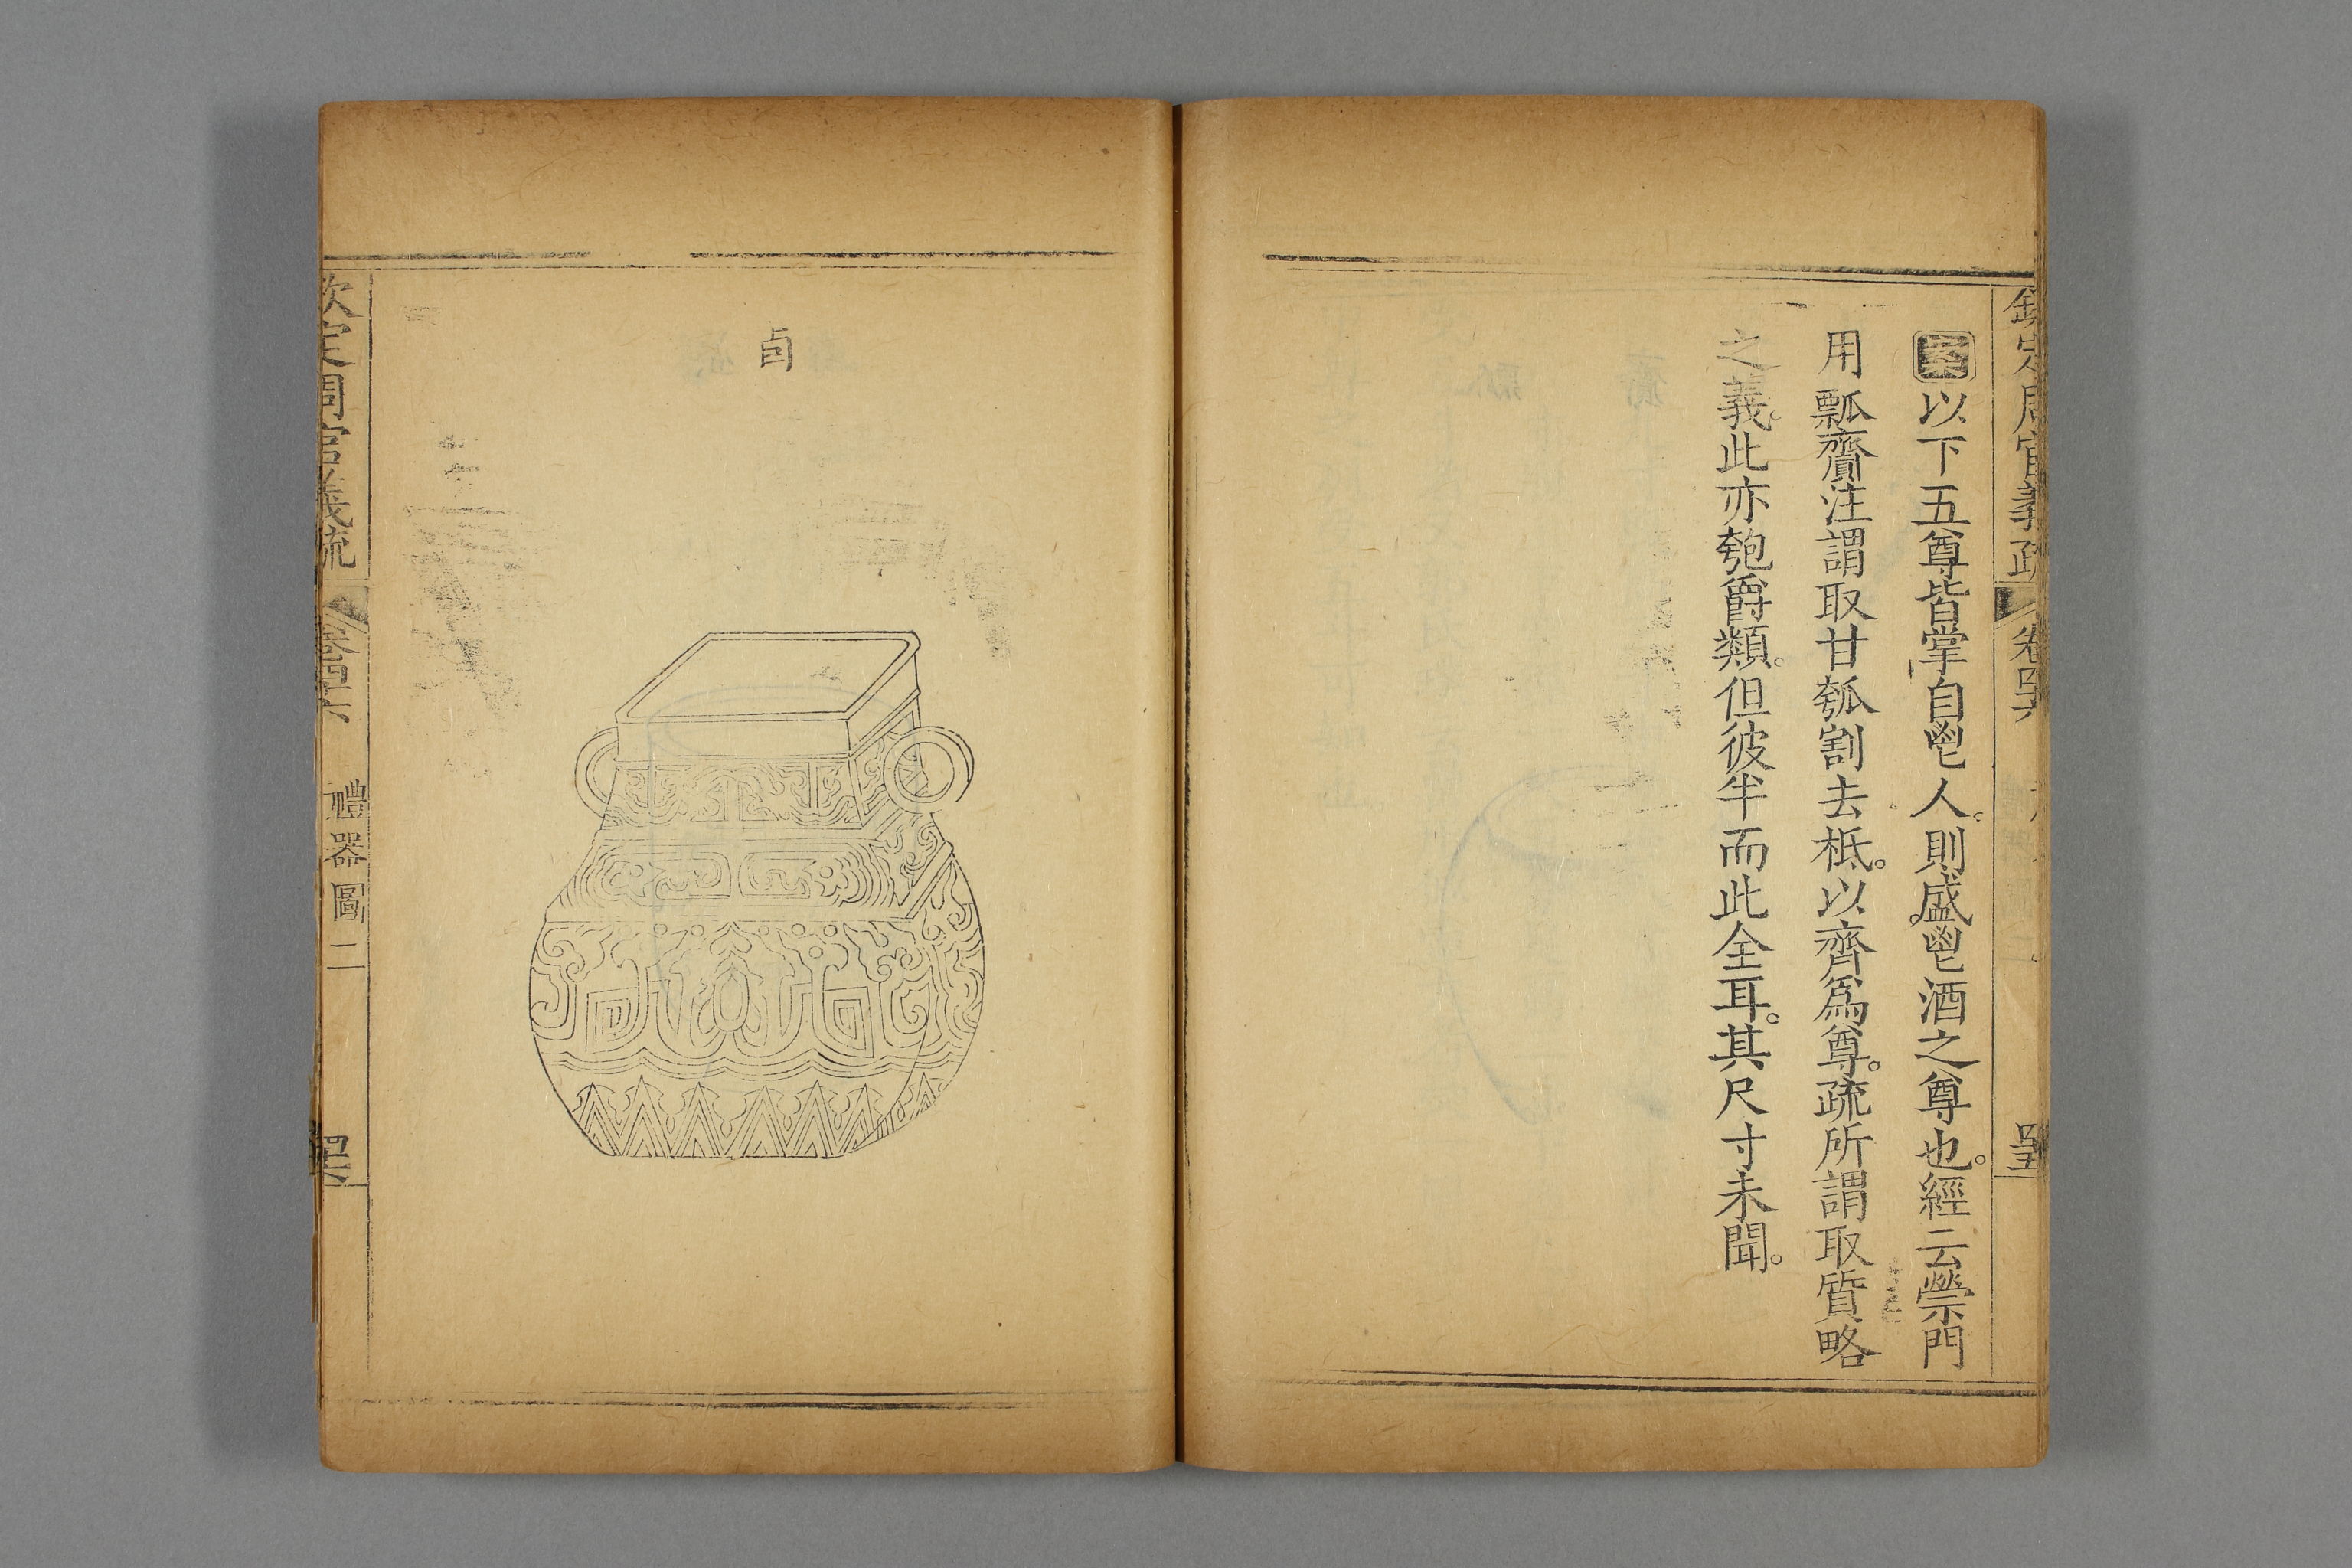 欽定周官義疏 卷四六 四五
案以下五尊皆掌自鬯人。則盛鬯酒之尊也。經云禜門
用瓢齎注謂取甘瓠割去柢。以齊爲尊。疏所謂取質略
之義。此亦匏爵類。但彼半而此全耳。其尺寸未聞。
卣
欽定周官義疏 卷四六 禮器圖二 四六